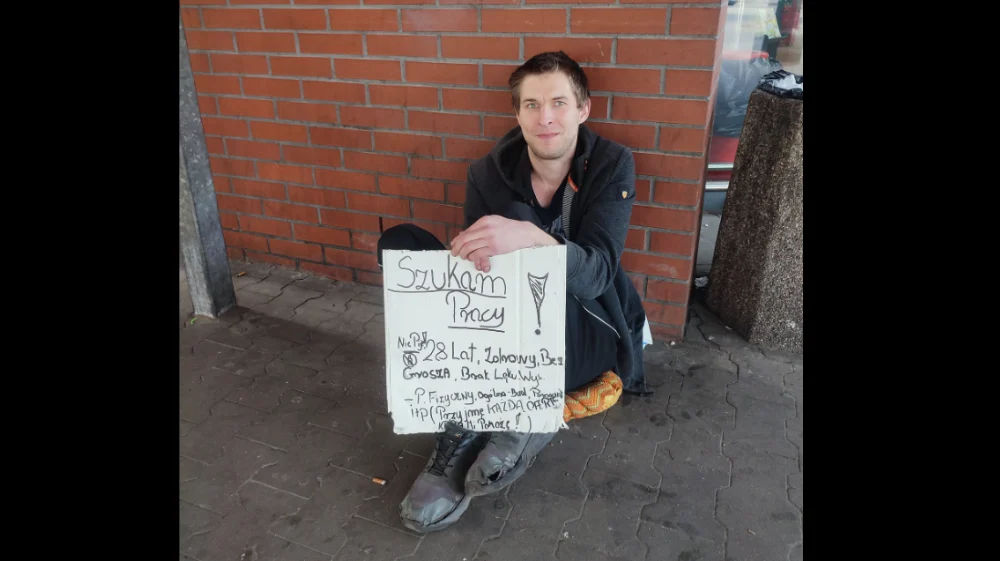 Szukam
Pracy !
Nie Piję
28 Lat, Zdrowy, Bez
Grosza, Brak Lęku Wys.
- P. Fizyczny, Ogólno-Bud,
itp (Przyjmę KAŻDĄ OFERTĘ
Pomoże! )